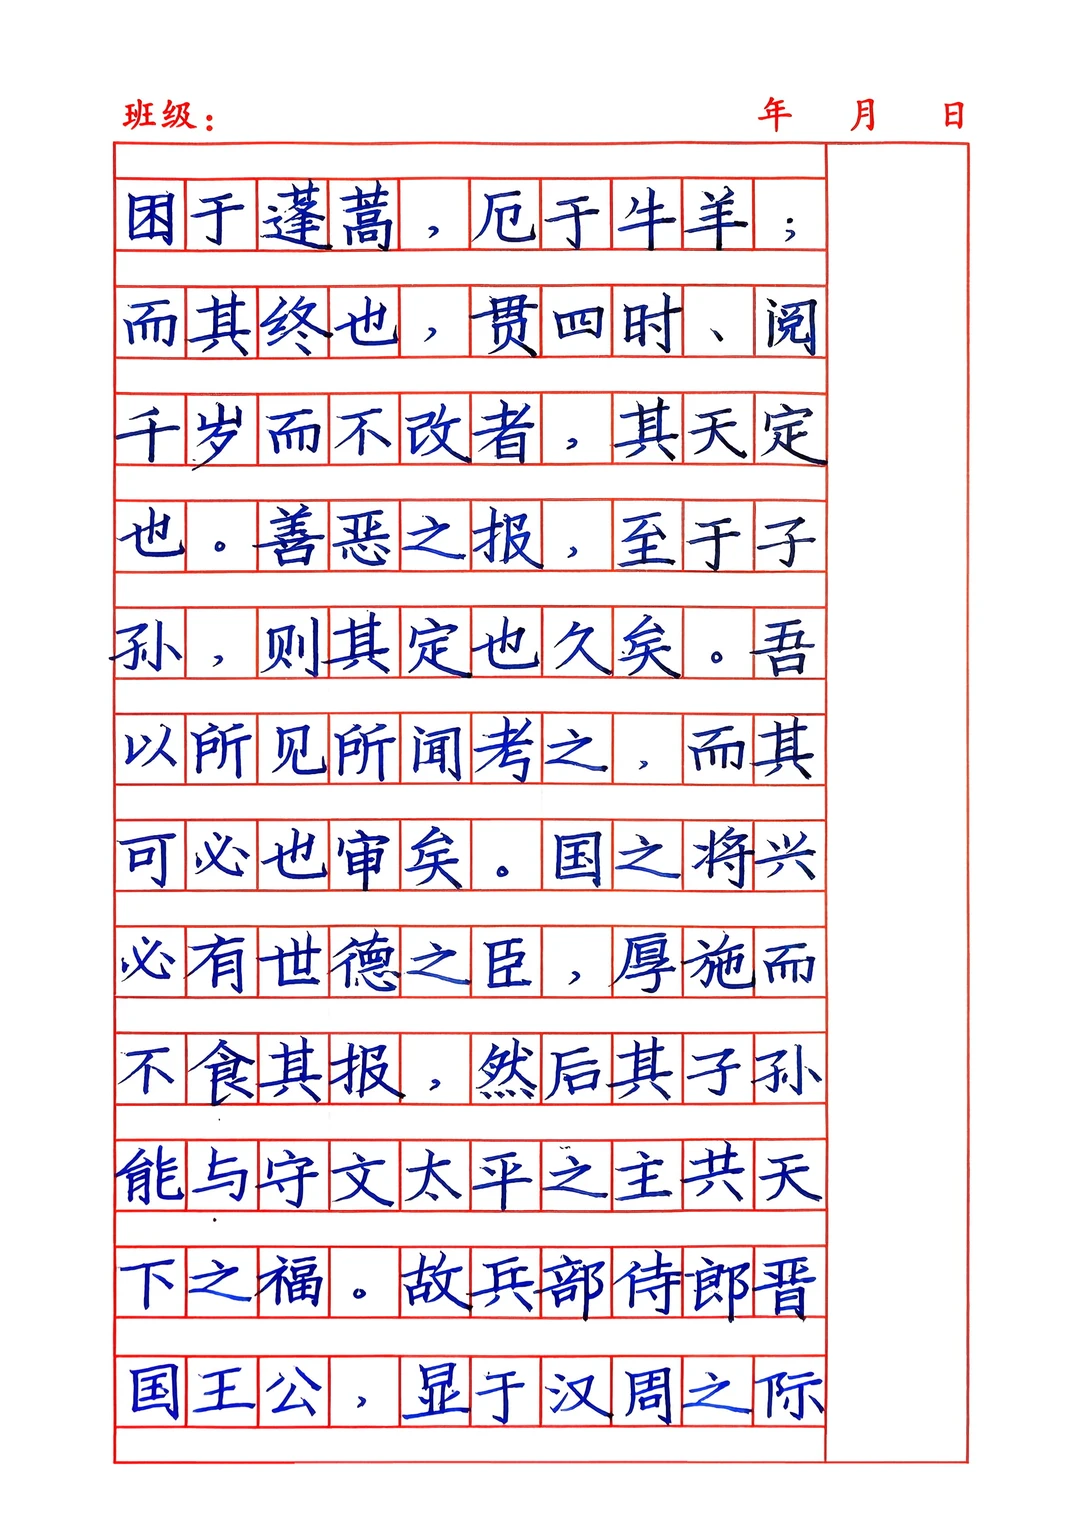 班级： 年 月 日
困于蓬蒿，厄于牛羊；
而其终也，贯四时、阅
千岁而不改者，其天定
也。善恶之报，至于子
孙，则其定也久矣。吾
以所见所闻考之，而其
可必也审矣。国之将兴
必有世德之臣，厚施而
不食其报，然后其子孙
能与守文太平之主共天
下之福。故兵部侍郎晋
国王公，显于汉周之际